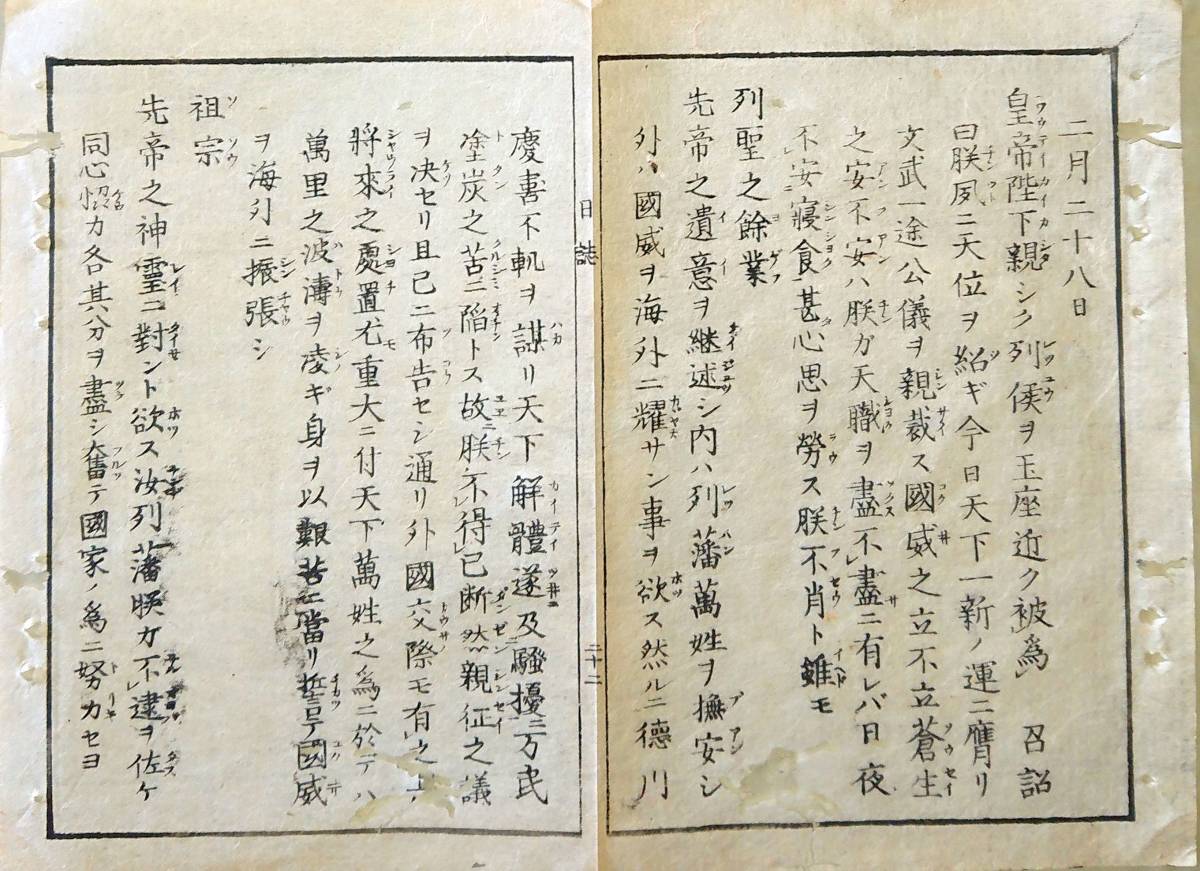 二月二十八日
皇帝陛下親シク列侯ヲ玉座近ク被為 召詔
曰朕夙ニ天位ヲ紹ギ今日天下一新ノ運ニ膺リ
文武一途公儀ヲ親裁ス國威之立不立蒼生
之安不安ハ朕ガ天職ヲ盡不盡ニ有レバ日夜
不安寢食甚心思ヲ勞ス朕不肖ト雖モ
列聖之餘業
先帝之遺意ヲ継述シ内ハ列藩萬姓ヲ撫安シ
外ハ國威ヲ海外ニ耀サン事ヲ欲ス然ルニ德川
日誌
二十二
慶喜不軌ヲ謀リ天下解體遂及騒擾ニ万民
塗炭之苦ニ陥トス故朕不得已断然親征之議
ヲ决セリ且已ニ布告セシ通リ外國交際モ有之上ハ
將來之處置尤重大ニ付天下萬姓之為ニ於テハ
萬里之波濤ヲ凌ギ身ヲ以艱苦ニ當リ誓テ國威
ヲ海外ニ振張シ
祖宗
先帝之神靈ニ對ント欲ス汝列藩朕ガ不逮ヲ佐ケ
同心協力各其分ヲ盡シ奮テ國家ノ為ニ努力セヨ